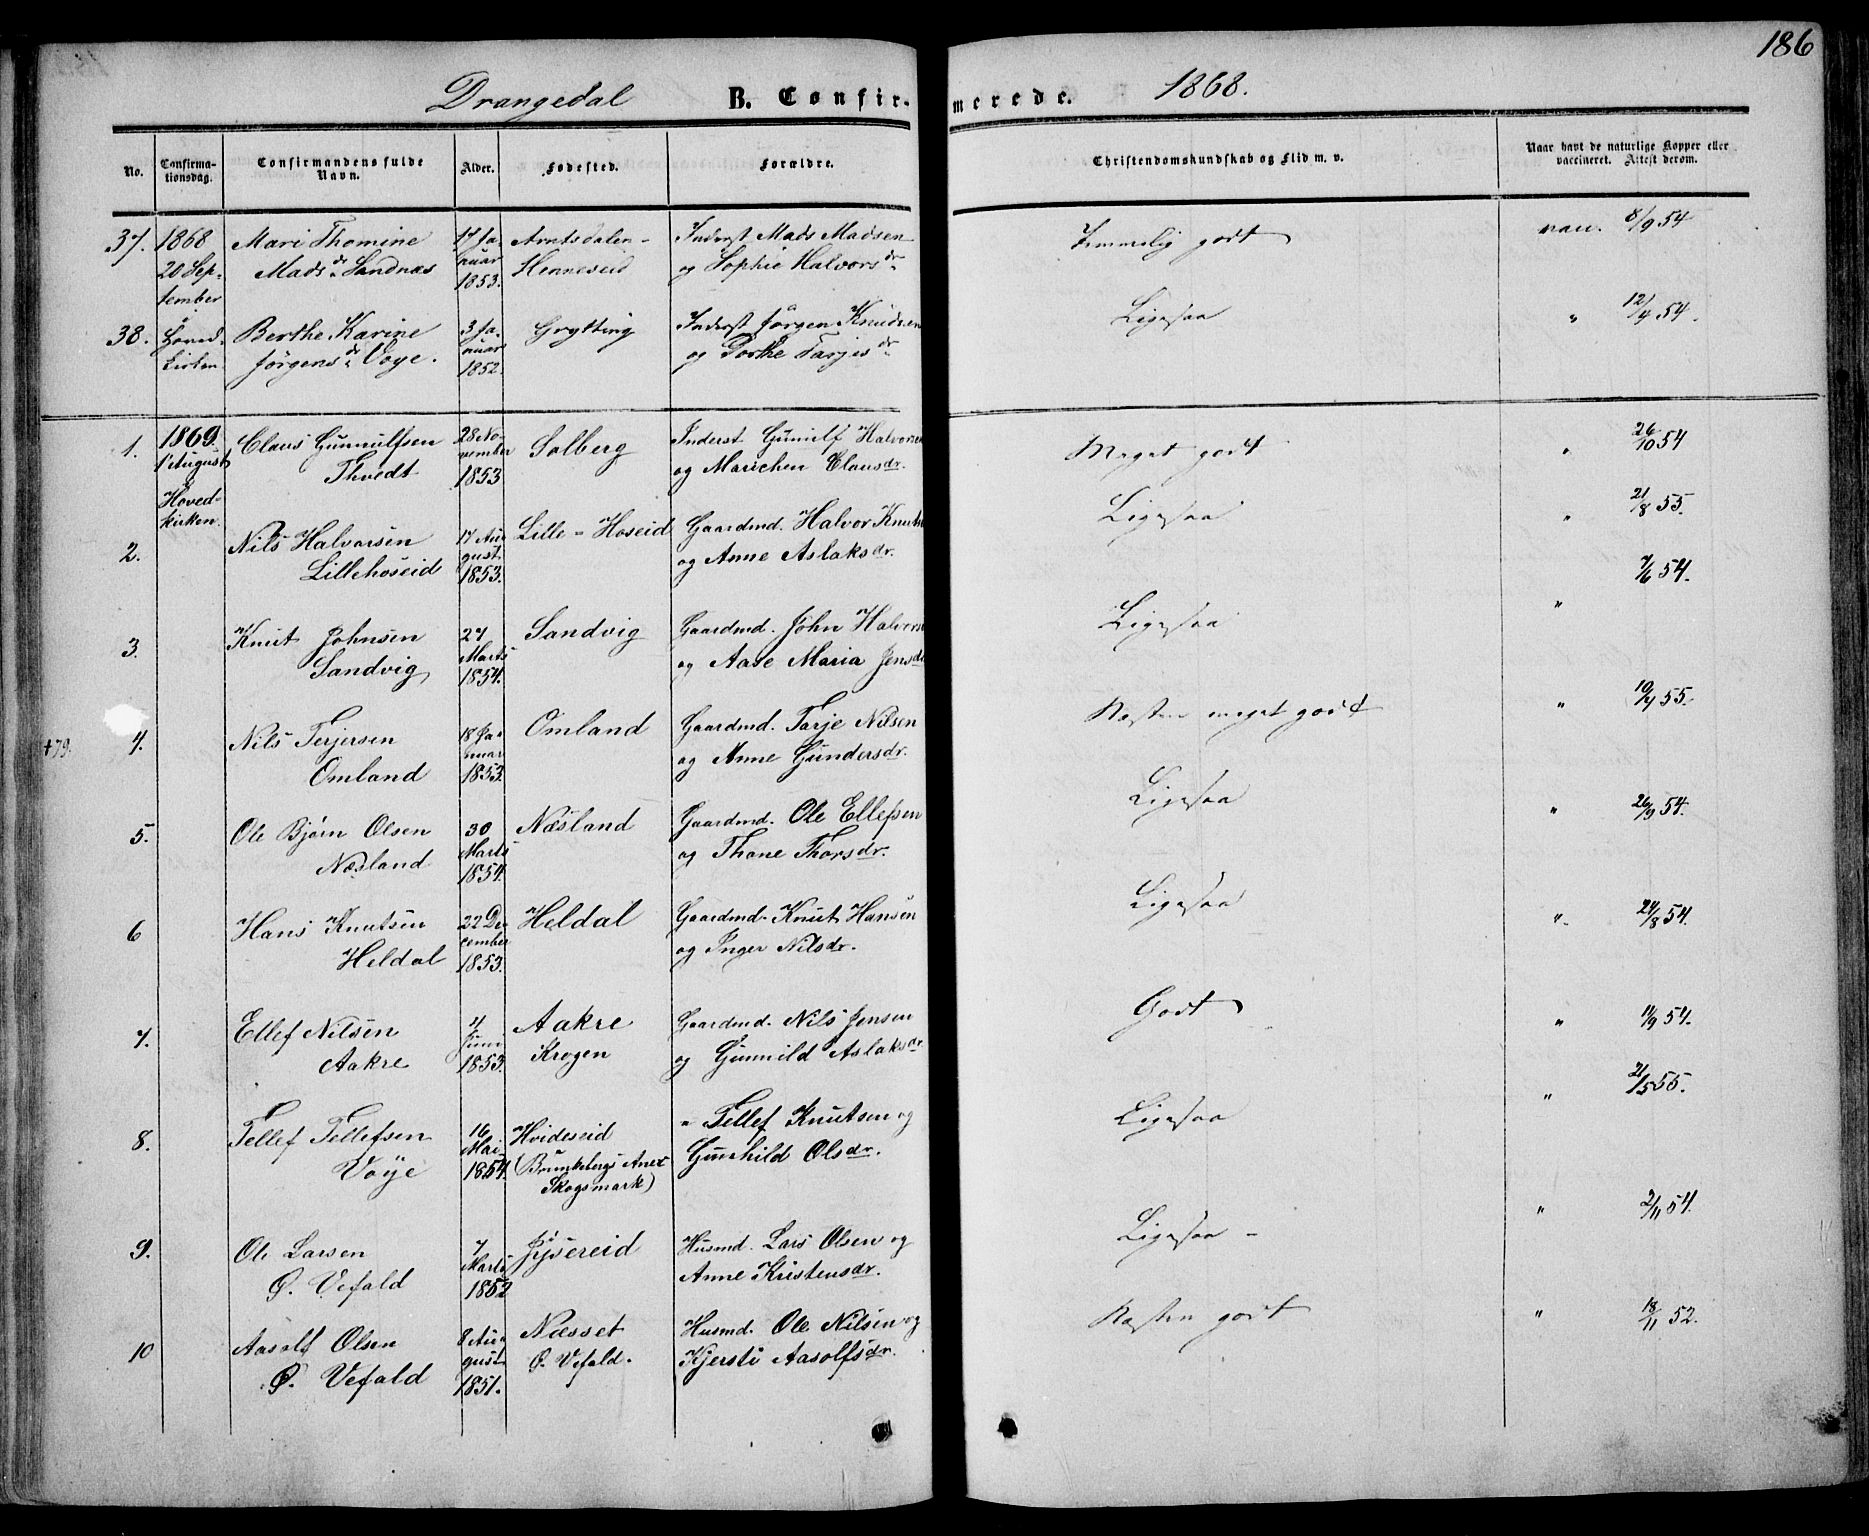 186
Drangedal B. Confirmerede. 1868.
No. Confirmationsdag. Confirmandens fulde Navn. Alder. Fødested. Forældre. Christendomskundskab og Flid m. v. Naar havt de naturlige Kopper eller vaccineret. Attest derom.
37. 1868 Mari Thomine 17 Ja- Arntsdalen - Inderst Mads Madsen Temmelig godt vac. 8/9 54
20 Sep- Madsdr. Sandnæs nuar Henneseid og Sophie Halvorsdr.
tember 1853.
38. Hoved- Berthe Karine 3 Ja- Grytting Inderst Jörgen Knudsen Ligesaa " 12/4 54.
kirken. Jörgensdr. Voje. nuar og Dorthe Tarjesdr.
1852.
1. 1869. Claus Gunnulfsen 28 No- Solberg Inderst Gunulf Halvorsen Meget godt " 26/10 54
1 August Thvedt vember og Marichen Clausdr.
1853
Hoved-
kirken.
2. Nils Halvorsen 17 Au- Lille-Hoseid Gaardmd. Halvor Knuts Ligesaa " 21/8 55.
Lillehoseid gust og Anne Aslaksdr.
1853.
3. Knut Johnsen 27 Sandvig Gaardmd. John Halvors Ligesaa " 7/6 54.
Sandvig Marts og Aase Maria Jensdr
1854.
+79. 4. Nils Terjersen 18 Ja- Omland Gaardmd. Tarje Nilsen Næsten meget godt " 10/4 55.
Omland nuar og Anne Gundersdr.
1853.
5. Ole Bjørn Olsen 30 Næsland Gaardmd. Ole Ellefsen Ligesaa " 26/9 54.
Næsland Marts og Thone Thorsdr.
1854.
6 Hans Knutsen 22 De- Heldal Gaardmd. Knut Hansen Ligesaa " 24/8 54.
Heldal cember og Inger Nilsdr.
1853.
7. Ellef Nilsen 4 Aakre Gaardmd. Nils Jensen Godt " 11/9 54.
Aakre Juni Krogen og Gunnild Aslaksdr
1853.
8. Tellef Tellefsen 16 Hvideseid " Tellef Knutsen og Ligesaa " 21/5 55.
Voje Mai (Brunkebergs Anex Gunhild Olsdr.
1854. Skogsmark)
9. Ole Larsen 7 Jysereid Husmd. Lars Olsen og Ligesaa - " 2/11 54.
Ø. Vefald Marts Anne Kristensdr.
1852
10 Aasolf Olsen 8 Au- Næsset Husmd. Ole Nilsen og Næsten godt " 18/11 52.
Ø. Vefald gust Ø. Vefald. Kjersti Aasolfsdr.
1851.